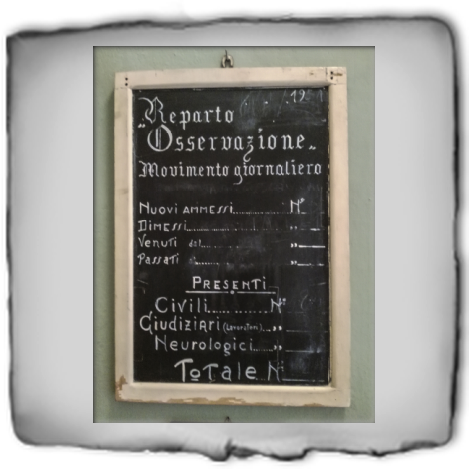 19
„Reparto
Osservazione„
Movimento giornaliero
Nuovi ammessi.............. N°
Dimessi........................ „
Venuti dal.................... „
Passati al.................... „
Presenti
Civili........... N°
Giudiziari (Lavoratori)... „
Neurologici.... „
Totale N°